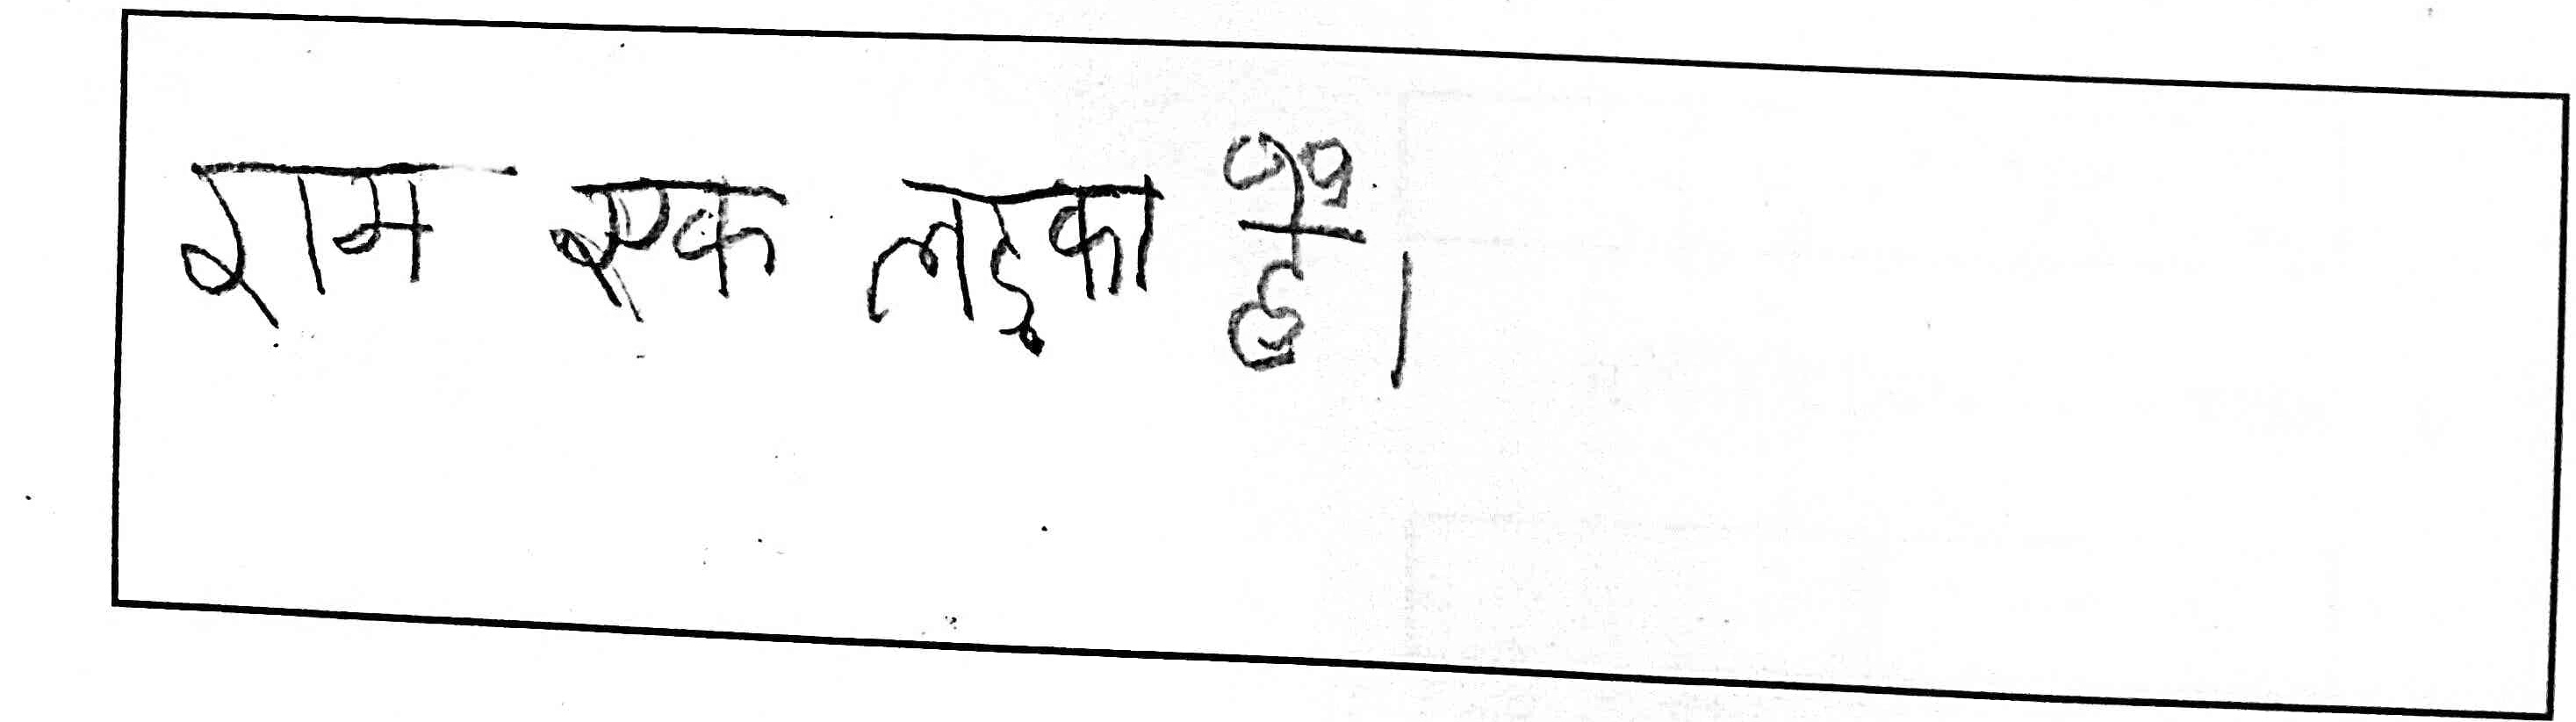 राम एक लड़का है।